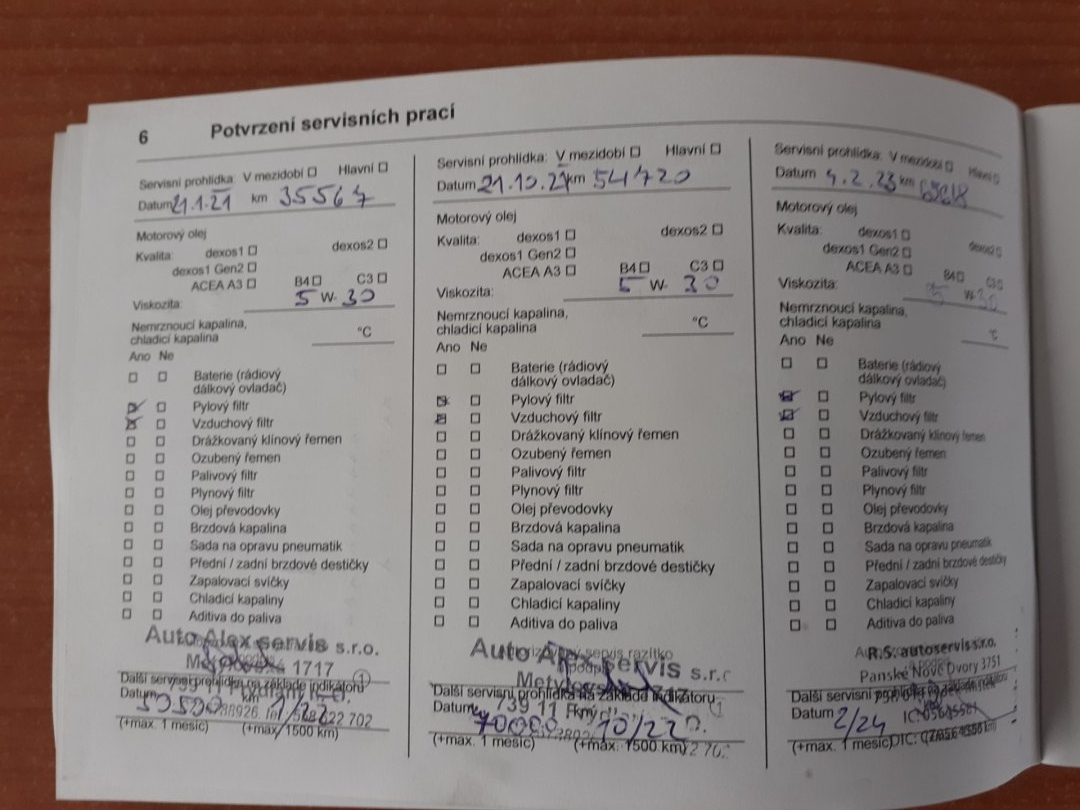 6 Potvrzení servisních prací
Servisní prohlídka: V mezidobí ☐ Hlavní ☐
Datum 21.1.21 km 35567
Motorový olej
Kvalita: dexos1 ☐ dexos2 ☐
dexos1 Gen2 ☐
ACEA A3 ☐ B4 ☐ C3 ☐
Viskozita: 5 W- 30
Nemrznoucí kapalina,
chladicí kapalina °C
Ano Ne
☐ ☐ Baterie (rádiový
dálkový ovladač)
☒ ☐ Pylový filtr
☒ ☐ Vzduchový filtr
☐ ☐ Drážkovaný klínový řemen
☐ ☐ Ozubený řemen
☐ ☐ Palivový filtr
☐ ☐ Plynový filtr
☐ ☐ Olej převodovky
☐ ☐ Brzdová kapalina
☐ ☐ Sada na opravu pneumatik
☐ ☐ Přední / zadní brzdové destičky
☐ ☐ Zapalovací svíčky
☐ ☐ Chladicí kapaliny
☐ ☐ Aditiva do paliva
Auto Alex servis s.r.o.
1717
Další servisní prohlídka na základě indikátoru
739 11
Datum 1/22
722 702
(+max. 1 měsíc) (+max. 1500 km)
Servisní prohlídka: V mezidobí ☐ Hlavní ☐
Datum 21.10.21 km 54720
Motorový olej
Kvalita: dexos1 ☐ dexos2 ☐
dexos1 Gen2 ☐
ACEA A3 ☐ B4 ☐ C3 ☐
Viskozita: 5 W- 30
Nemrznoucí kapalina,
chladicí kapalina °C
Ano Ne
☐ ☐ Baterie (rádiový
dálkový ovladač)
☒ ☐ Pylový filtr
☒ ☐ Vzduchový filtr
☐ ☐ Drážkovaný klínový řemen
☐ ☐ Ozubený řemen
☐ ☐ Palivový filtr
☐ ☐ Plynový filtr
☐ ☐ Olej převodovky
☐ ☐ Brzdová kapalina
☐ ☐ Sada na opravu pneumatik
☐ ☐ Přední / zadní brzdové destičky
☐ ☐ Zapalovací svíčky
☐ ☐ Chladicí kapaliny
☐ ☐ Aditiva do paliva
Auto Alex servis s.r.o
Další servisní prohlídka na základě indikátoru
739 11
Datum 70000 10/22
(+max. 1 měsíc) (+max. 1500 km)
Servisní prohlídka: V mezidobí ☐ Hlavní ☐
Datum 4.2.23 km
Motorový olej
Kvalita: dexos1 ☐ dexos2 ☐
dexos1 Gen2 ☐
ACEA A3 ☐ B4 ☐ C3 ☐
Viskozita: 5 W-30
Nemrznoucí kapalina,
chladicí kapalina °C
Ano Ne
☐ ☐ Baterie (rádiový
dálkový ovladač)
☒ ☐ Pylový filtr
☒ ☐ Vzduchový filtr
☐ ☐ Drážkovaný klínový řemen
☐ ☐ Ozubený řemen
☐ ☐ Palivový filtr
☐ ☐ Plynový filtr
☐ ☐ Olej převodovky
☐ ☐ Brzdová kapalina
☐ ☐ Sada na opravu pneumatik
☐ ☐ Přední / zadní brzdové destičky
☐ ☐ Zapalovací svíčky
☐ ☐ Chladicí kapaliny
☐ ☐ Aditiva do paliva
R.S. autoservis s.r.o.
Panské Nové Dvory 3751
Další servisní prohlídka
Datum 2/24
(+max. 1 měsíc) DIC: